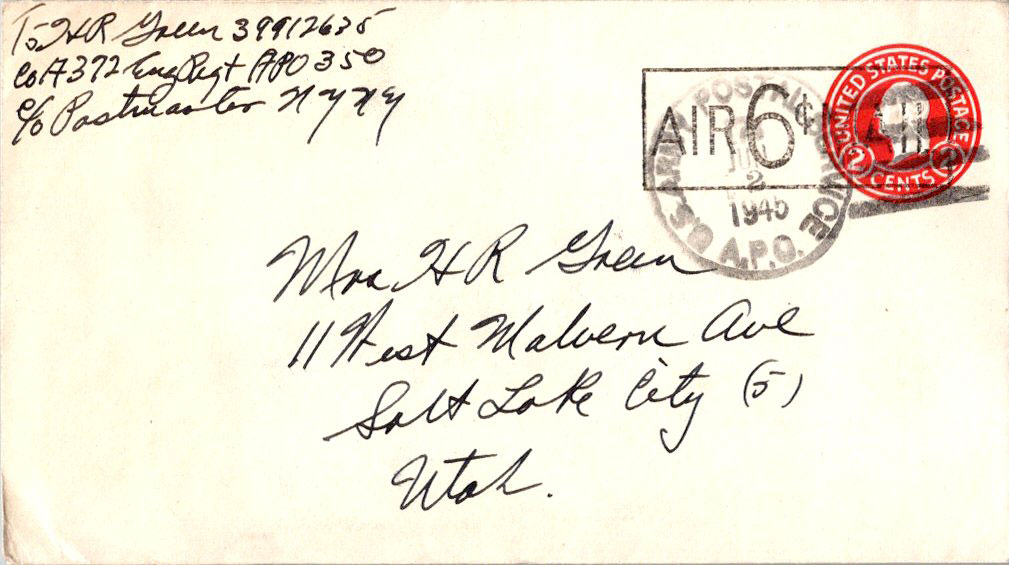 T/5 H R Green 39912635
Co A 372 Eng Regt APO 350
c/o Postmaster N Y N Y
UNITED STATES POSTAGE
2 CENTS 2
AIR 6¢
U.S. ARMY POSTAL SERVICE
2
1945
A.P.O.
Mrs H R Green
11 West Malvern Ave
Salt Lake City (5)
Utah.